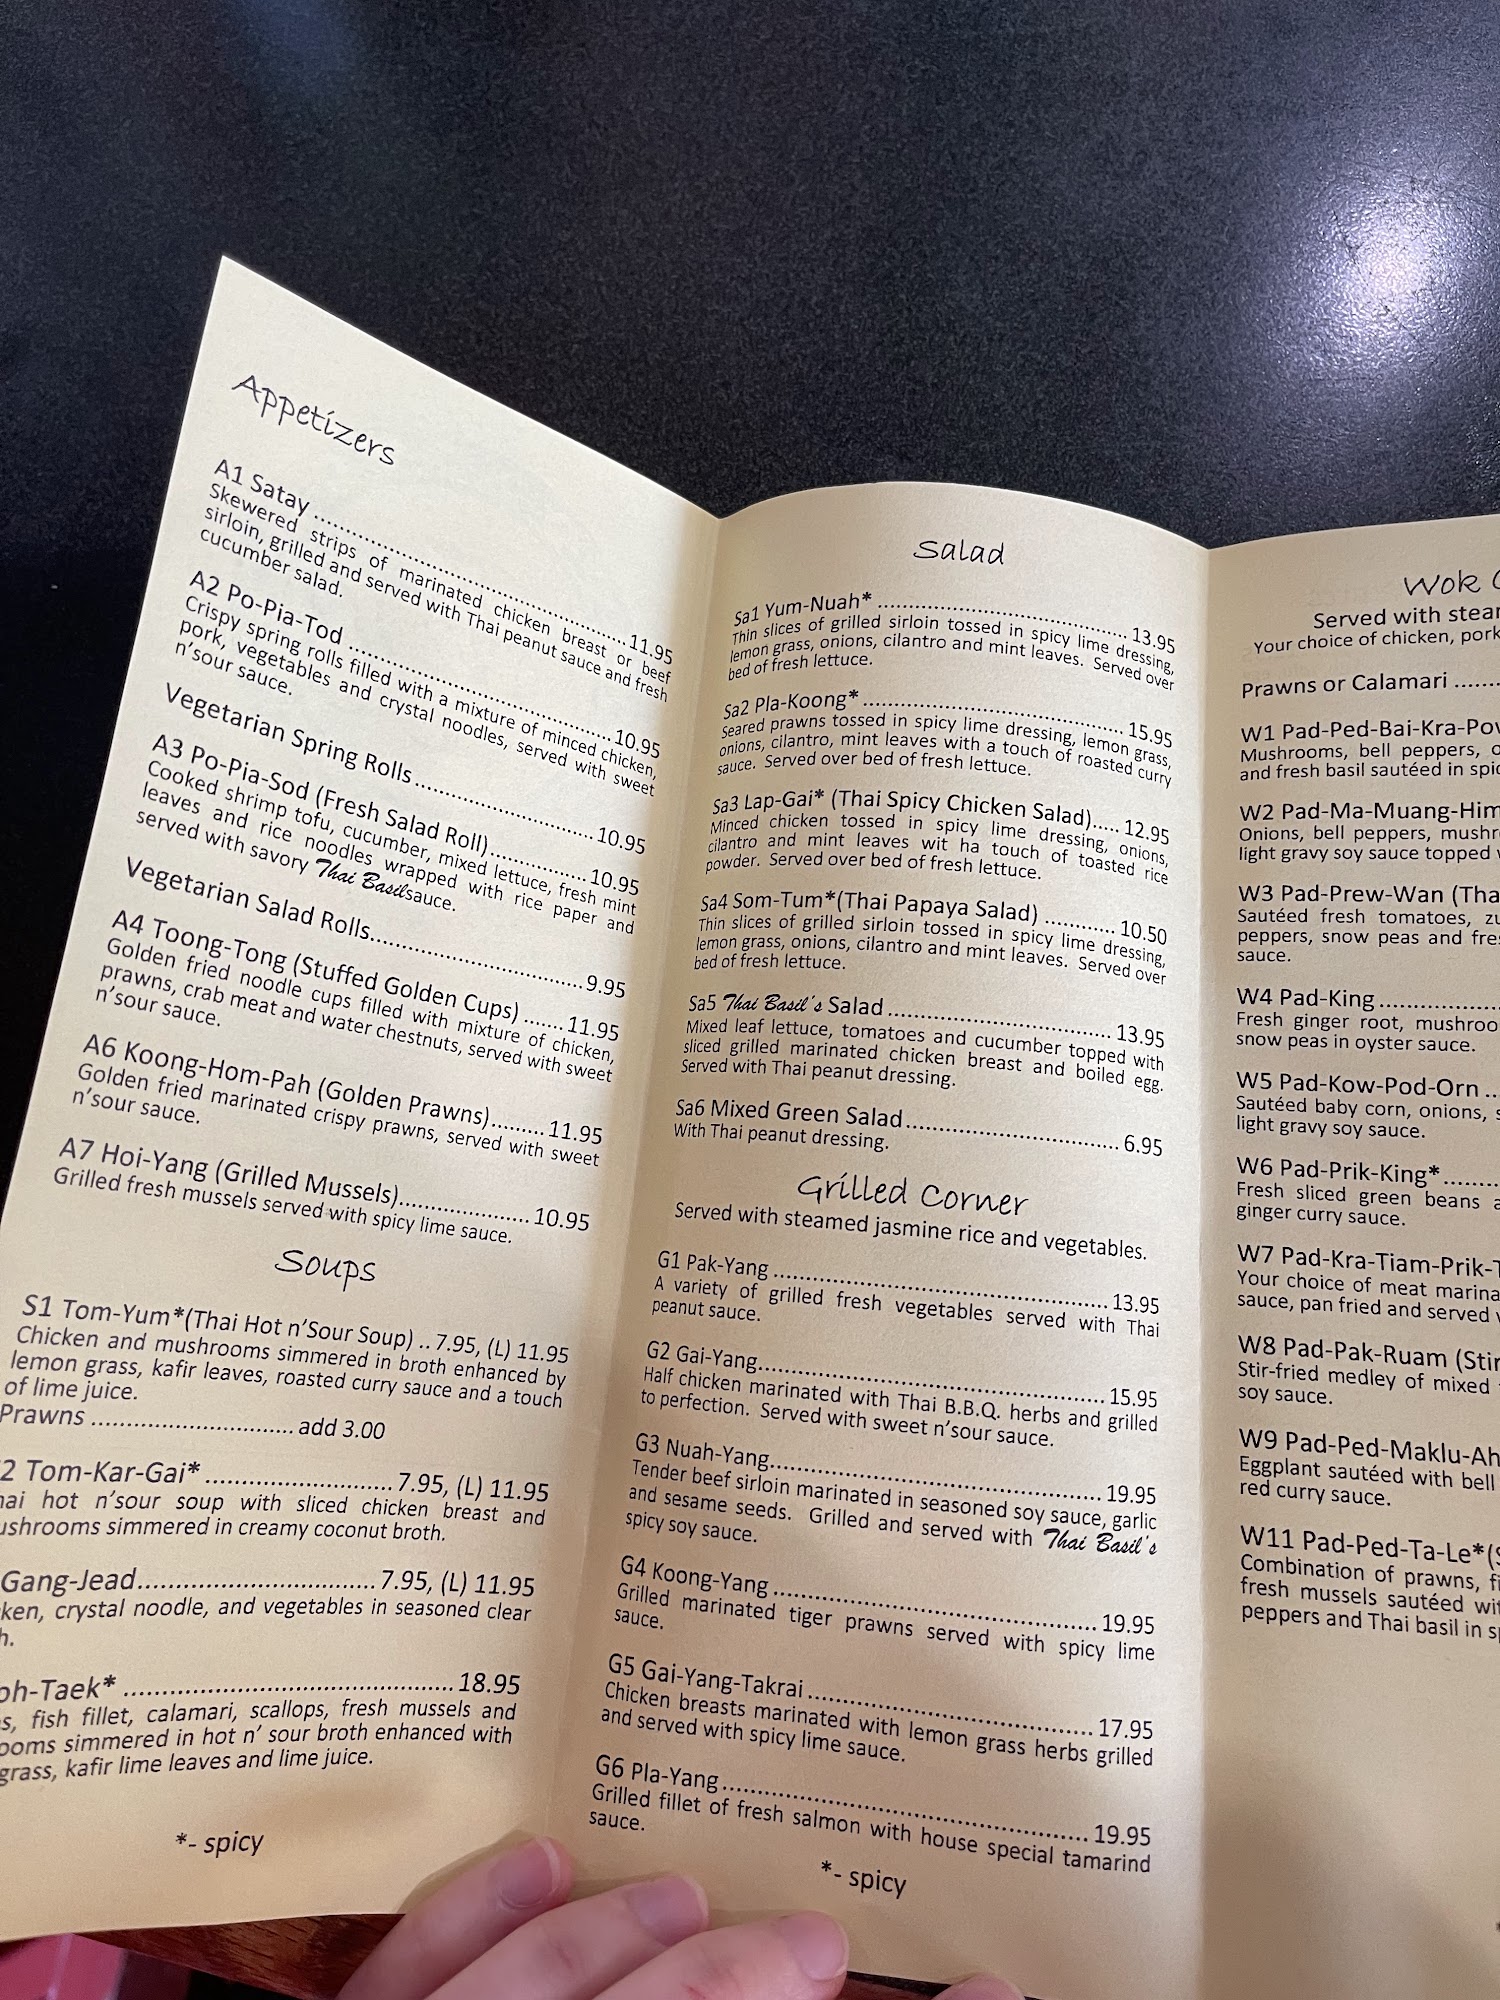 Appetizers
A1 Satay ................ 11.95
Skewered strips of marinated chicken breast or beef
sirloin, grilled and served with Thai peanut sauce and fresh
cucumber salad.
A2 Po-Pia-Tod ................ 10.95
Crispy spring rolls filled with a mixture of minced chicken,
pork, vegetables and crystal noodles, served with sweet
n'sour sauce.
Vegetarian Spring Rolls ................ 10.95
A3 Po-Pia-Sod (Fresh Salad Roll) ................ 10.95
Cooked shrimp tofu, cucumber, mixed lettuce, fresh mint
leaves and rice noodles wrapped with rice paper and
served with savory Thai Basilsauce.
Vegetarian Salad Rolls ................ 9.95
A4 Toong-Tong (Stuffed Golden Cups) ....... 11.95
Golden fried noodle cups filled with mixture of chicken,
prawns, crab meat and water chestnuts, served with sweet
n'sour sauce.
A6 Koong-Hom-Pah (Golden Prawns) ......... 11.95
Golden fried marinated crispy prawns, served with sweet
n'sour sauce.
A7 Hoi-Yang (Grilled Mussels) ................ 10.95
Grilled fresh mussels served with spicy lime sauce.
Soups
S1 Tom-Yum*(Thai Hot n'Sour Soup) .. 7.95, (L) 11.95
Chicken and mushrooms simmered in broth enhanced by
lemon grass, kafir leaves, roasted curry sauce and a touch
of lime juice.
Prawns ................ add 3.00
2 Tom-Kar-Gai* ................ 7.95, (L) 11.95
hai hot n'sour soup with sliced chicken breast and
ushrooms simmered in creamy coconut broth.
Gang-Jead ................ 7.95, (L) 11.95
ken, crystal noodle, and vegetables in seasoned clear
h.
oh-Taek* ................ 18.95
s, fish fillet, calamari, scallops, fresh mussels and
ooms simmered in hot n' sour broth enhanced with
grass, kafir lime leaves and lime juice.
*- spicy
Salad
Sa1 Yum-Nuah* ................ 13.95
Thin slices of grilled sirloin tossed in spicy lime dressing,
lemon grass, onions, cilantro and mint leaves. Served over
bed of fresh lettuce.
Sa2 Pla-Koong* ................ 15.95
Seared prawns tossed in spicy lime dressing, lemon grass,
onions, cilantro, mint leaves with a touch of roasted curry
sauce. Served over bed of fresh lettuce.
Sa3 Lap-Gai* (Thai Spicy Chicken Salad)..... 12.95
Minced chicken tossed in spicy lime dressing, onions,
cilantro and mint leaves wit ha touch of toasted rice
powder. Served over bed of fresh lettuce.
Sa4 Som-Tum*(Thai Papaya Salad) ........... 10.50
Thin slices of grilled sirloin tossed in spicy lime dressing,
lemon grass, onions, cilantro and mint leaves. Served over
bed of fresh lettuce.
Sa5 Thai Basil's Salad ................ 13.95
Mixed leaf lettuce, tomatoes and cucumber topped with
sliced grilled marinated chicken breast and boiled egg.
Served with Thai peanut dressing.
Sa6 Mixed Green Salad ................ 6.95
With Thai peanut dressing.
Grilled Corner
Served with steamed jasmine rice and vegetables.
G1 Pak-Yang ................ 13.95
A variety of grilled fresh vegetables served with Thai
peanut sauce.
G2 Gai-Yang ................ 15.95
Half chicken marinated with Thai B.B.Q. herbs and grilled
to perfection. Served with sweet n'sour sauce.
G3 Nuah-Yang ................ 19.95
Tender beef sirloin marinated in seasoned soy sauce, garlic
and sesame seeds. Grilled and served with Thai Basil's
spicy soy sauce.
G4 Koong-Yang ................ 19.95
Grilled marinated tiger prawns served with spicy lime
sauce.
G5 Gai-Yang-Takrai ................ 17.95
Chicken breasts marinated with lemon grass herbs grilled
and served with spicy lime sauce.
G6 Pla-Yang ................ 19.95
Grilled fillet of fresh salmon with house special tamarind
sauce.
*- spicy
Wok
Served with stea
Your choice of chicken, pork
Prawns or Calamari .......
W1 Pad-Ped-Bai-Kra-Po
Mushrooms, bell peppers,
and fresh basil sautéed in spi
W2 Pad-Ma-Muang-Him
Onions, bell peppers, mushr
light gravy soy sauce topped
W3 Pad-Prew-Wan (Tha
Sautéed fresh tomatoes, zu
peppers, snow peas and fre
sauce.
W4 Pad-King ................
Fresh ginger root, mushroo
snow peas in oyster sauce.
W5 Pad-Kow-Pod-Orn ...
Sautéed baby corn, onions, s
light gravy soy sauce.
W6 Pad-Prik-King* ........
Fresh sliced green beans a
ginger curry sauce.
W7 Pad-Kra-Tiam-Prik-T
Your choice of meat marina
sauce, pan fried and served
W8 Pad-Pak-Ruam (Stir
Stir-fried medley of mixed
soy sauce.
W9 Pad-Ped-Maklu-Ah
Eggplant sautéed with bell
red curry sauce.
W11 Pad-Ped-Ta-Le*(S
Combination of prawns, fi
fresh mussels sautéed wit
peppers and Thai basil in s